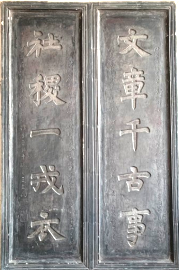 文章千古事
社稷一戎衣